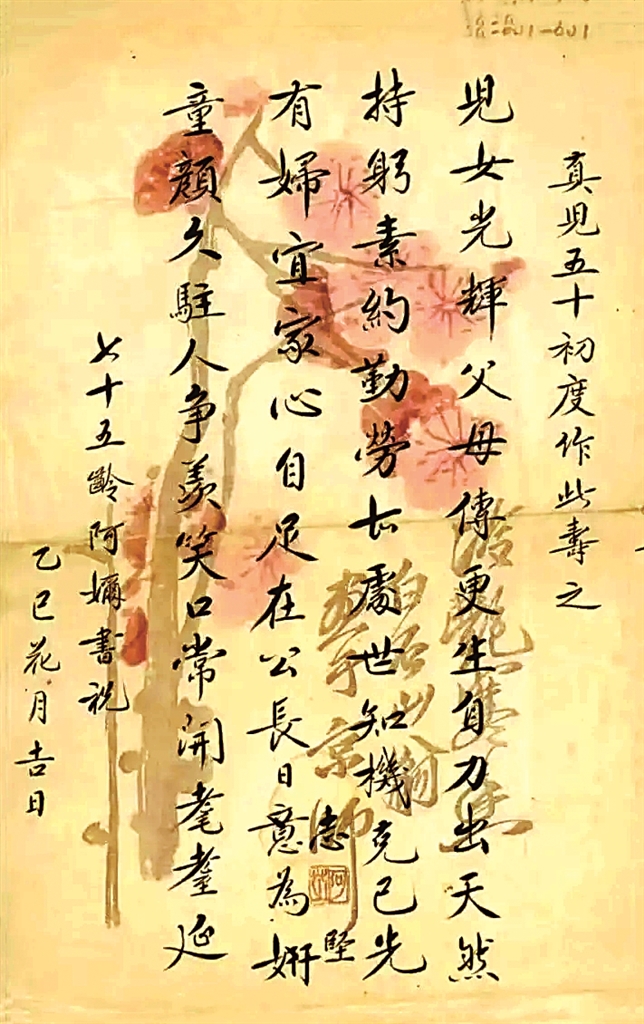 真兒五十初度作此壽之
兒女光輝父母傳更生自力出天然
持躬素約勤勞處世知機克己先
有婦宜家心自足在公長日意為妍
志
堅
童顏久駐人爭羨笑口常開耄耋延
七十五齡阿嬭書祝
乙巳花月吉日
白石山翁
京師